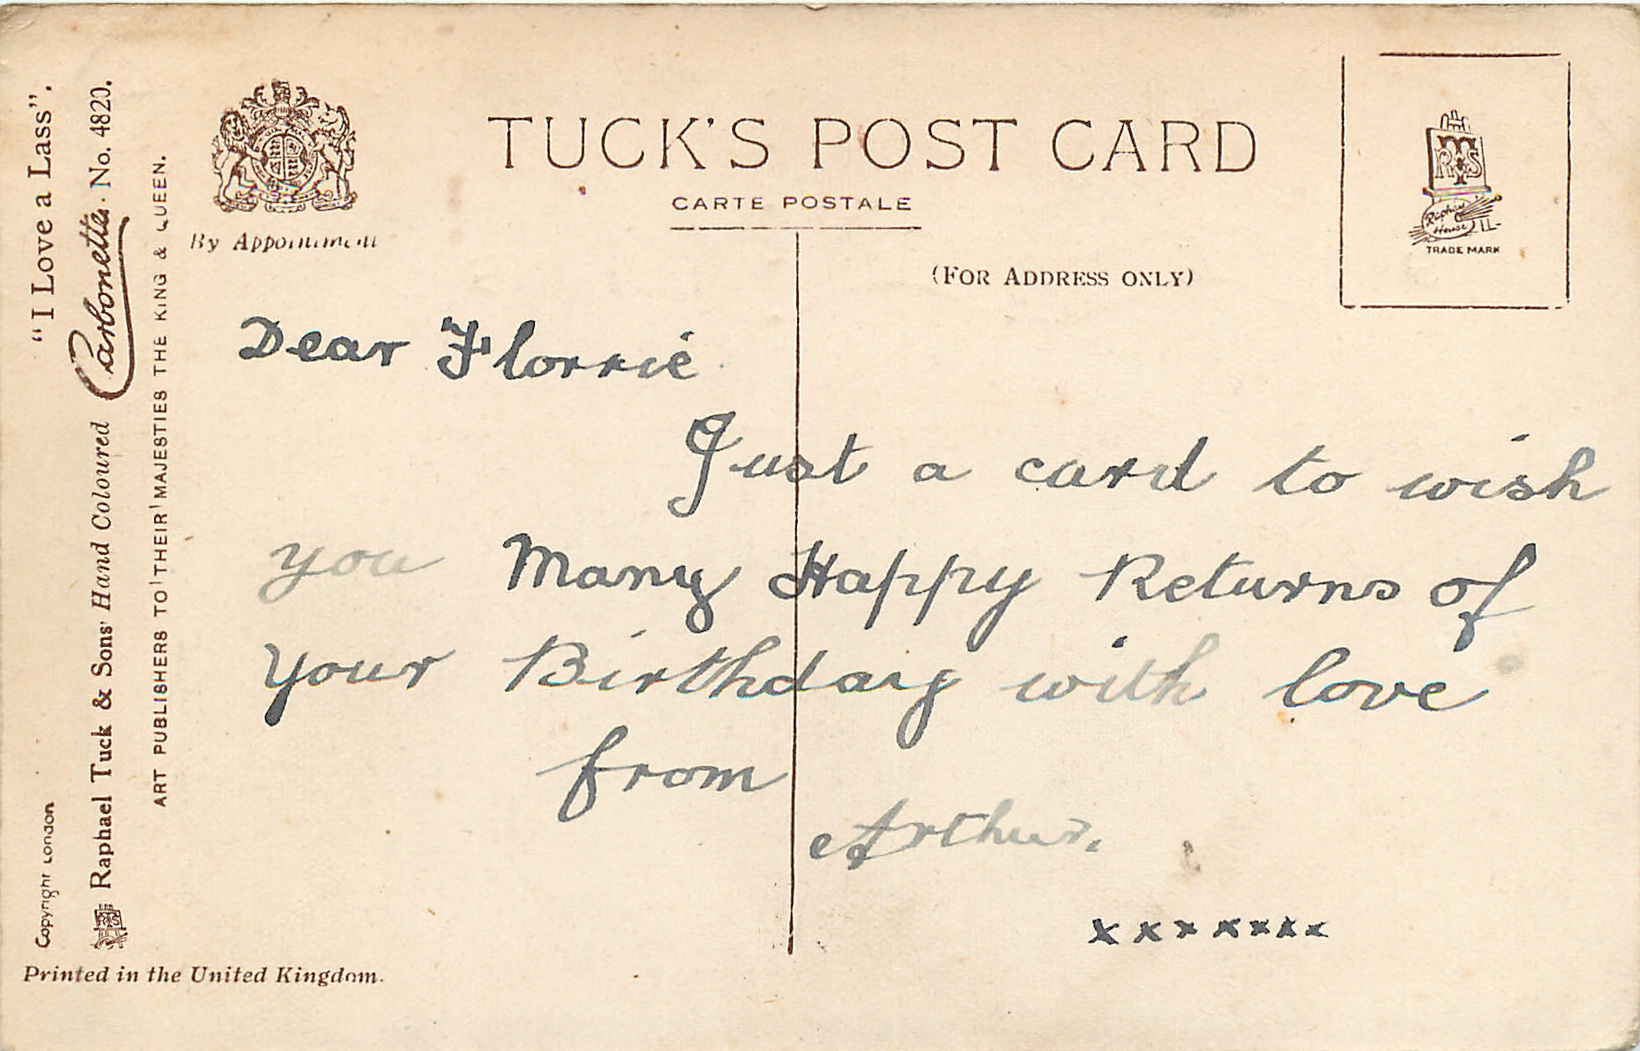 "I Love a Lass".
Raphael Tuck & Sons' Hand Coloured Carbonette. No. 4820.
ART PUBLISHERS TO THEIR MAJESTIES THE KING & QUEEN.
Copyright London
By Appointment
TUCK'S POST CARD
CARTE POSTALE
(FOR ADDRESS ONLY)
RTS
Raphael House
TRADE MARK
Dear Florrie
Just a card to wish
you Many Happy Returns of
your Birthday with love
from
Arthur.
x x x x x x x
Printed in the United Kingdom.